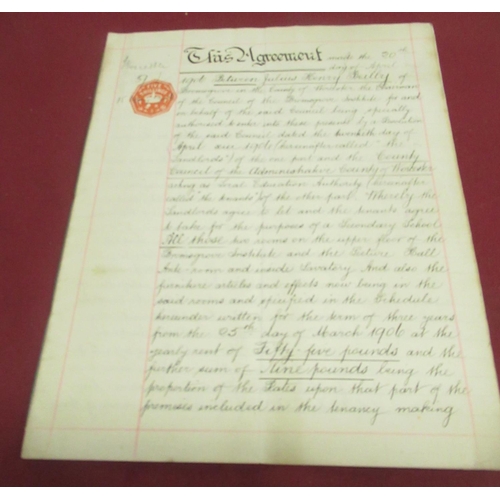 This Agreement made the 20th
day of April
1906 Between Julius Henry Reilly of
Bromsgrove in the County of Worcester the Chairman
of the Council of the Bromsgrove Institute for and
on behalf of the said Council being specially
authorised to enter into these presents by a Resolution
of the said Council dated the day of
April one 1906 (hereinafter called "the
Landlords") of the one part and the County
Council of the Administrative County of Worcester
acting as Local Education Authority (hereinafter
called "the tenants") of the other part. Whereby the
Landlords agree to let and the tenants agree
to take for the purposes of a Secondary School
All those two rooms on the upper floor of the
Bromsgrove Institute and the Lecture Hall
Ante room and inside Lavatory And also the
furniture articles and effects now being in the
said rooms and specified in the Schedule
hereunder written for the term of three years
from the 25th day of March 1906 at the
yearly rent of Fifty five pounds and the
further sum of Nine pounds being the
proportion of the Rates upon that part of the
premises included in the tenancy making